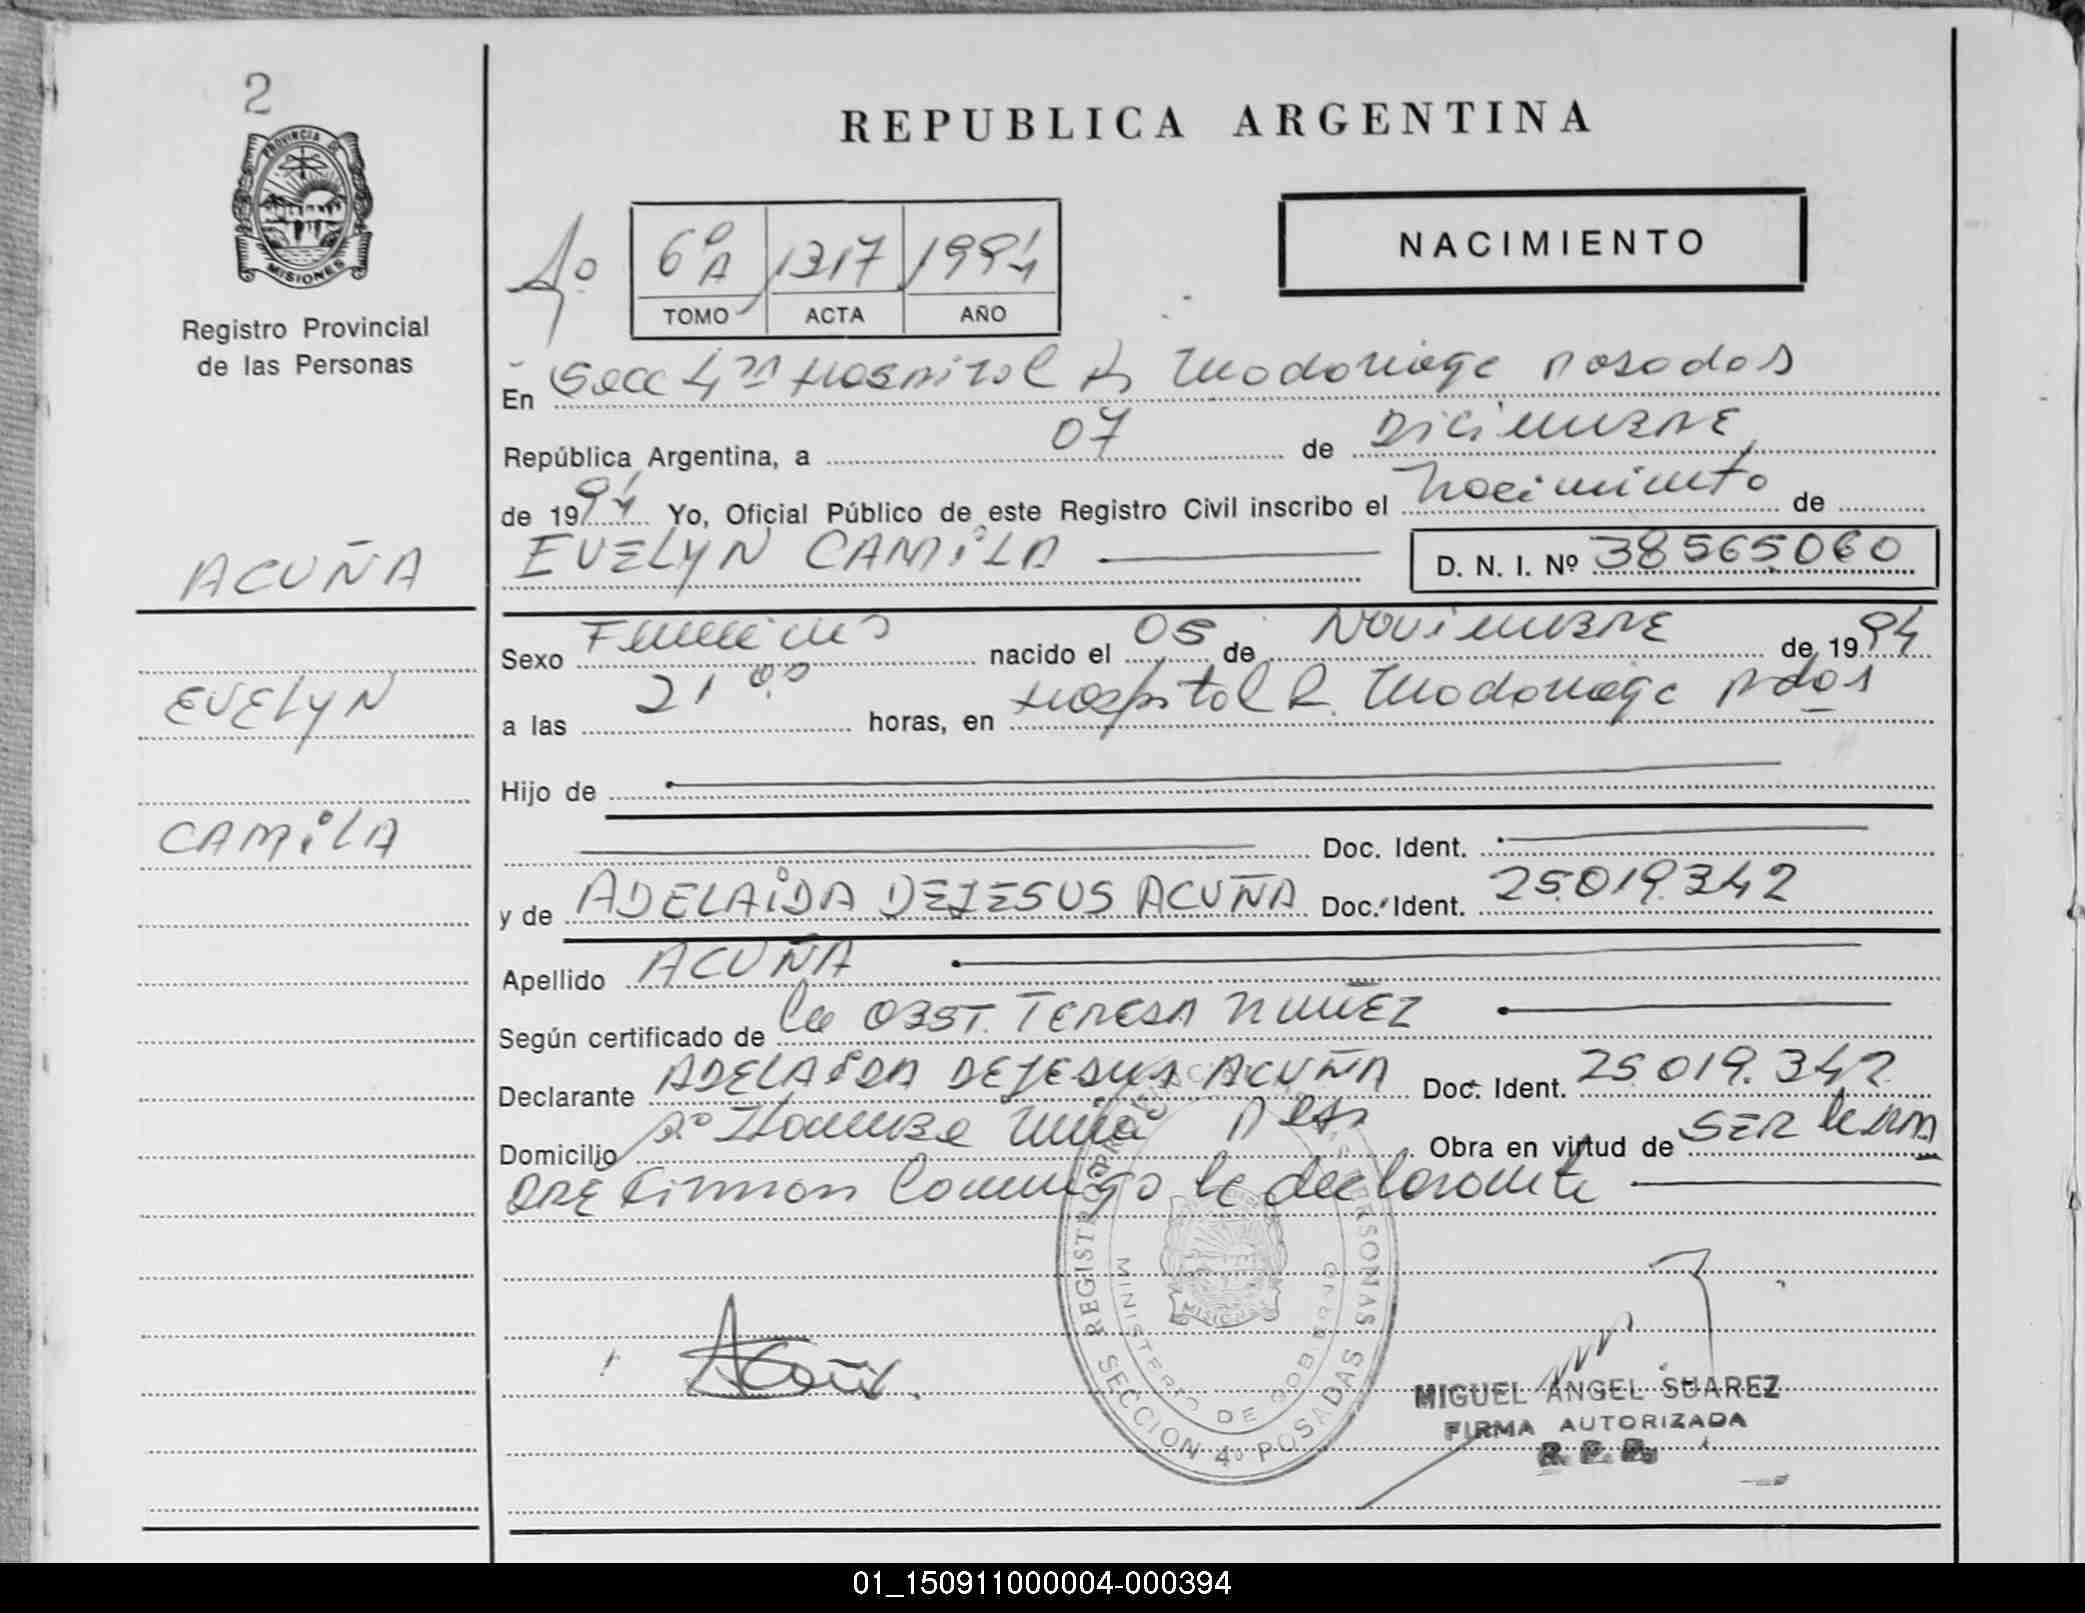 2
PROVINCIA DE
MISIONES
Registro Provincial
de las Personas
REPUBLICA ARGENTINA
NACIMIENTO
4º
6º A 1317 1994
TOMO ACTA AÑO
En Secc 4ta Hospital R Madariaga Posadas
República Argentina, a 07 de Diciembre
de 1994 Yo, Oficial Público de este Registro Civil inscribo el Nacimiento de
ACUÑA
EVELYN CAMILA D. N. I. Nº 38565.060
Sexo Femenino nacido el 05 de Noviembre de 1994
EVELYN
a las 21 00 horas, en Hospital R. Madariaga Pdas
Hijo de
CAMILA
Doc. Ident.
y de ADELAIDA DEJESUS ACUÑA Doc. Ident. 25.019.342
Apellido ACUÑA
Según certificado de la OBST. TERESA NUÑEZ
Declarante ADELAIDA DEJESUS ACUÑA Doc. Ident. 25.019.342
Domicilio Obra en virtud de SER la MA
DRE Firman Conmigo la declarante
REGISTRO PROVINCIAL DE LAS PERSONAS
MINISTERIO DE GOBIERNO
MISIONES
SECCION 4º POSADAS
Acuña
MIGUEL ANGEL SUAREZ
FIRMA AUTORIZADA
R. P. P.
01_150911000004-000394